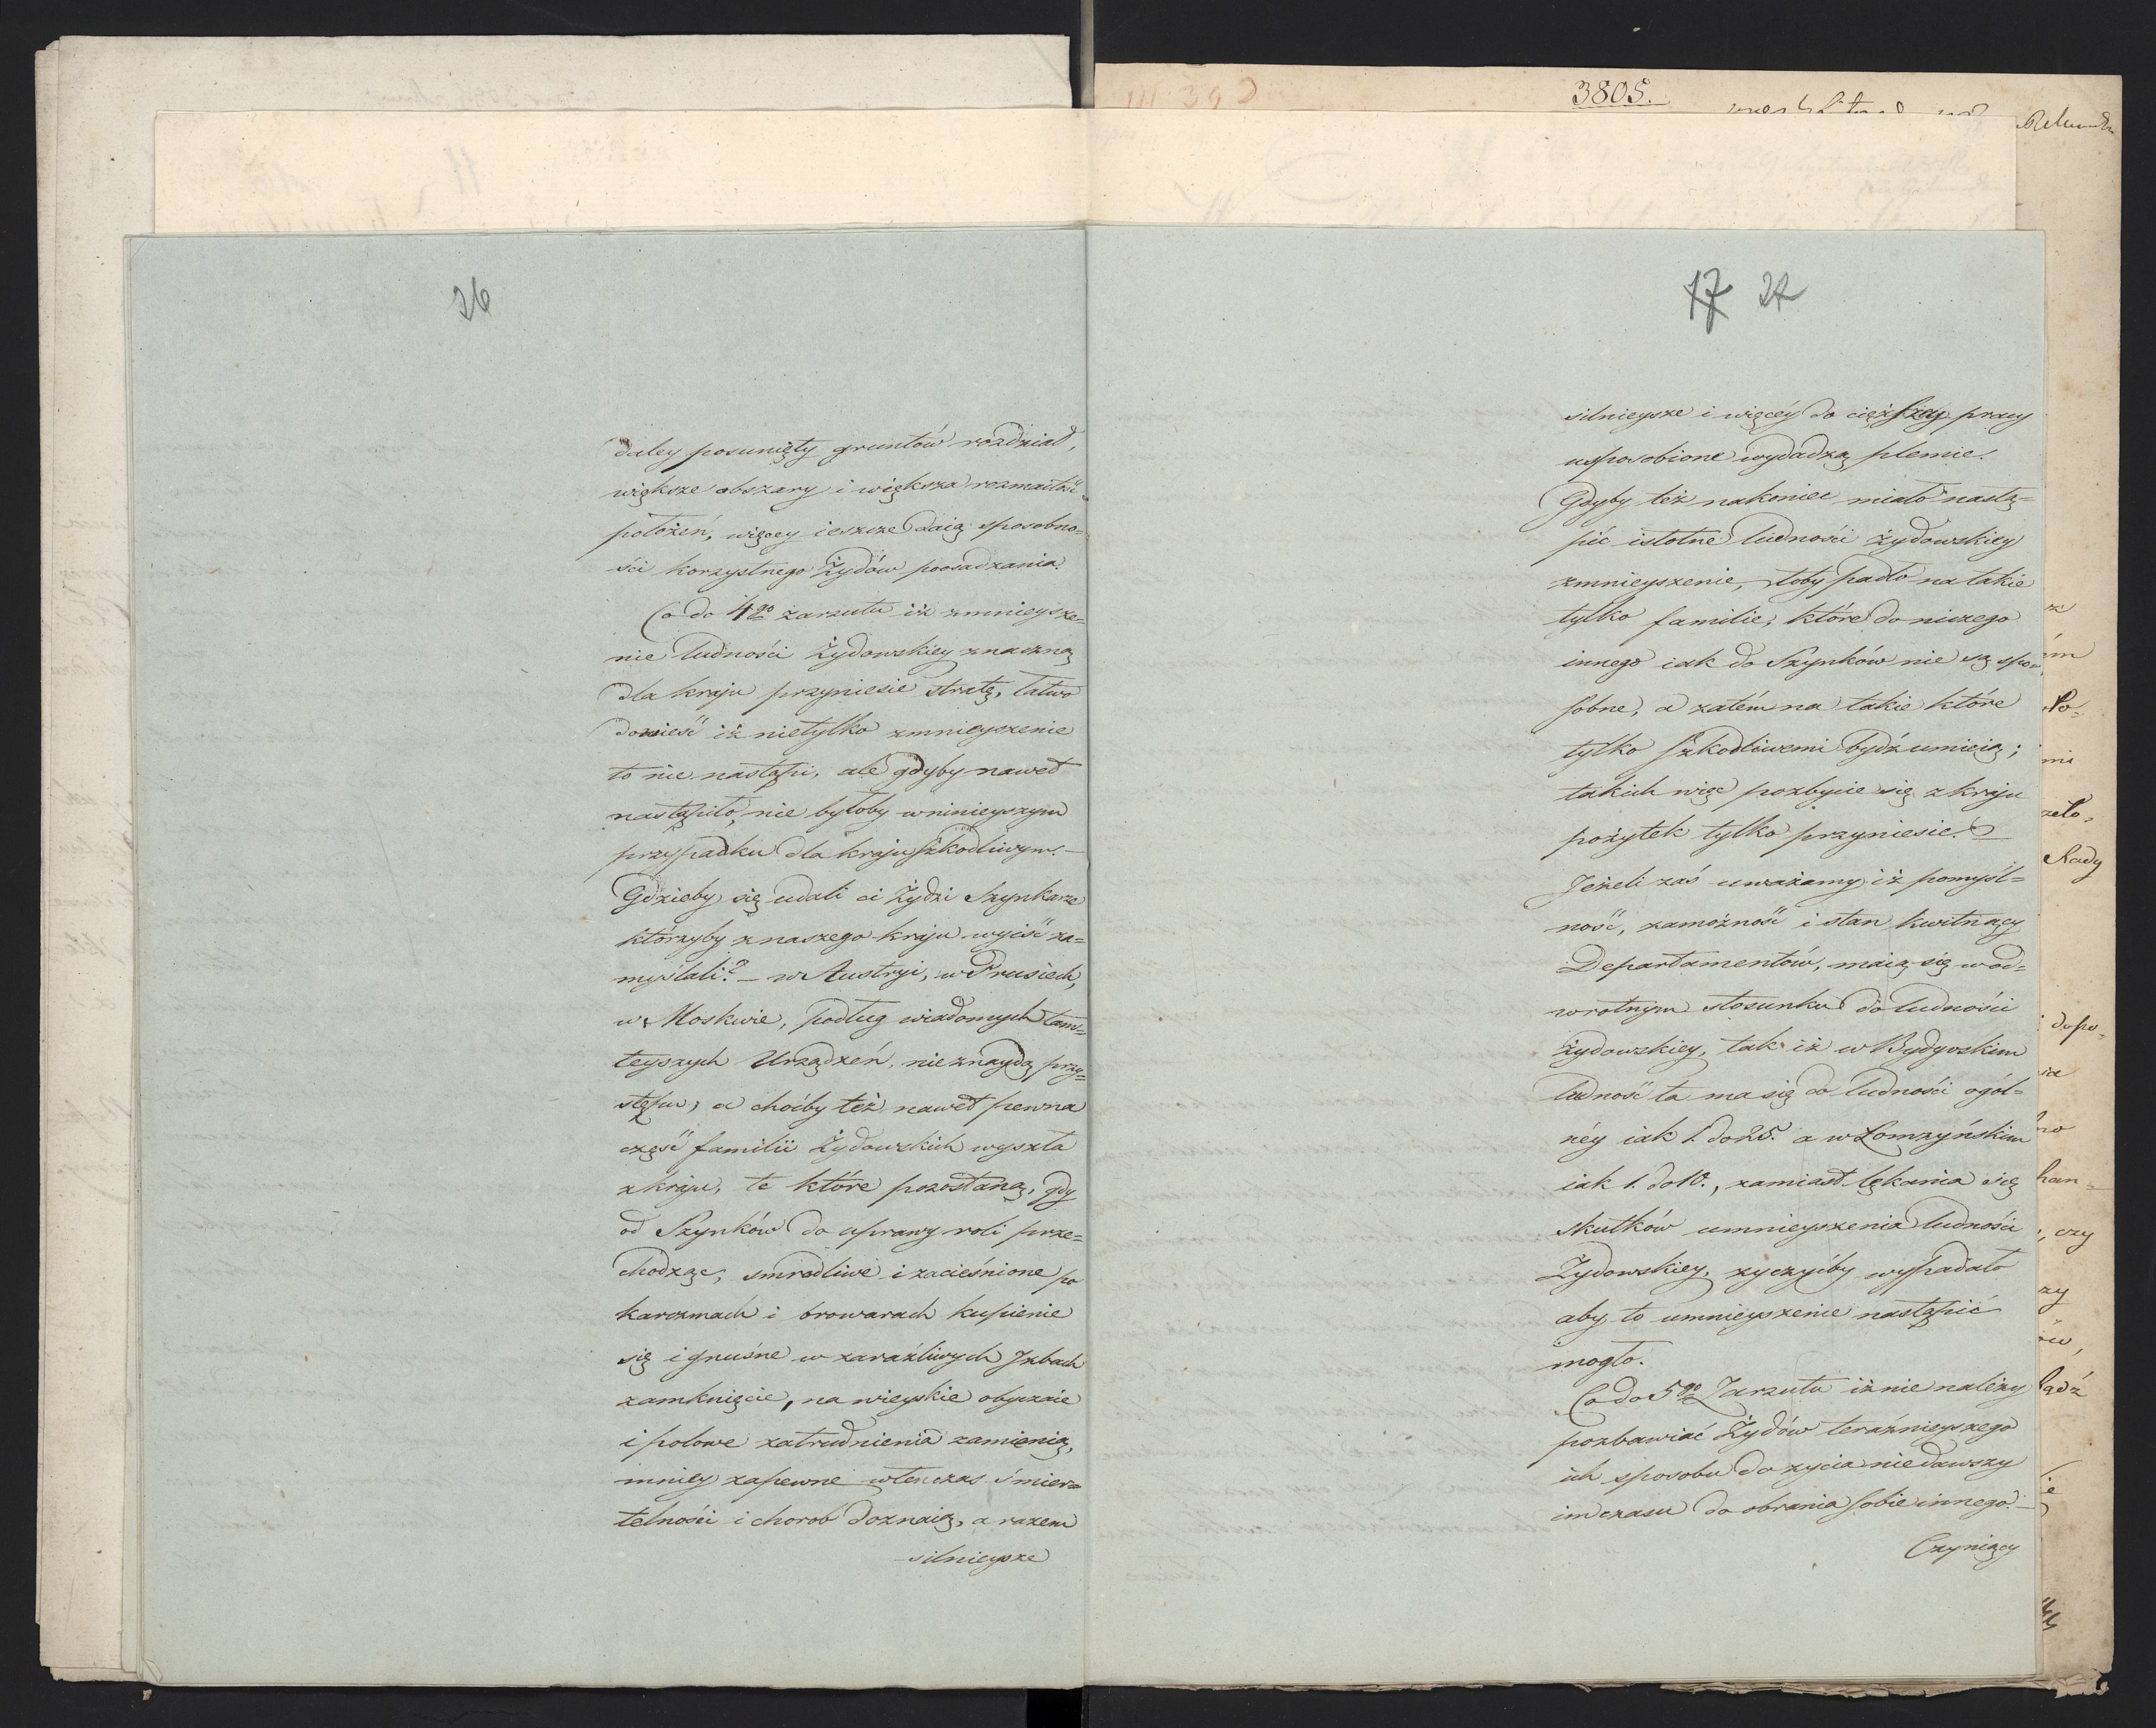 3805.
26
daley posunięty gruntów rozdział,
większe obszary i większa rozmaitość
położeń, więcey ieszcze daią sposobno=
ści korzystnego Żydów poosadzania.
Co do 4go zarzutu iż zmnieysze=
nie ludności Żydowskiey znaczną
dla kraju przyniesie stratę, łatwo
dowieść iż nietylko zmnieyszenie
to nie nastąpi, ale gdyby nawet
nastąpiło, nie byłoby w ninieyszym
przypadku dla kraju szkodliwym. —
Gdzieby się udali ci Żydzi Szynkarze
którzyby z naszego kraju wyiść za=
myślali? — w Austryi, w Prusiech,
w Moskwie, podług wiadomych tam=
teyszych Urządzeń, nie znaydą przy=
stępu, a choćby też nawet pewna
część familii Żydowskich wyszła
z kraju, te które pozostaną, gdy
od Szynków do uprawy roli prze=
chodząc, smrodliwe i zacieśnione po
karczmach i browarach kupienie
się i gnuśne w zaraźliwych Izbach
zamknięcie, na wieyskie obyczaie
i polowe zatrudnienia zamienią,
mniey zapewne wtenczas śmier=
telności i chorob doznaią, a razem
silnieysze
17 27
silnieysze i więcéy do cięższey pracy
usposobione wydadzą plemie.
Gdyby też nakoniec miało nastą=
pić istotne ludności żydowskiey
zmnieyszenie, toby padło na takie
tylko familie, które do niczego
innego iak do Szynków nie są spo=
sobne, a zatém na takie które
tylko szkodliwemi bydź umieią;
takich więc pozbycie się z kraju
pożytek tylko przyniesie. —
Jeżeli zaś uważamy iż pomyśl=
ność, zamożność i stan kwitnący
Departamentów, maią się w od=
wrotnym stosunku do ludności
żydowskiey, tak iż w Bydgoskim
ludność ta ma się do ludności ogól=
néy iak 1. do 25. a w Łomzyńskim
iak 1. do 10., zamiast lękania się
skutków umnieyszenia ludności
Żydowskiey, zyczyćby wypadało
aby to umnieyszenie nastąpić
mogło.
Co do 5go Zarzutu iż nie należy
pozbawiać Żydów teraźnieyszego
ich sposobu do życia nie dawszy
im czasu do obrania sobie innego. —
Czyniący